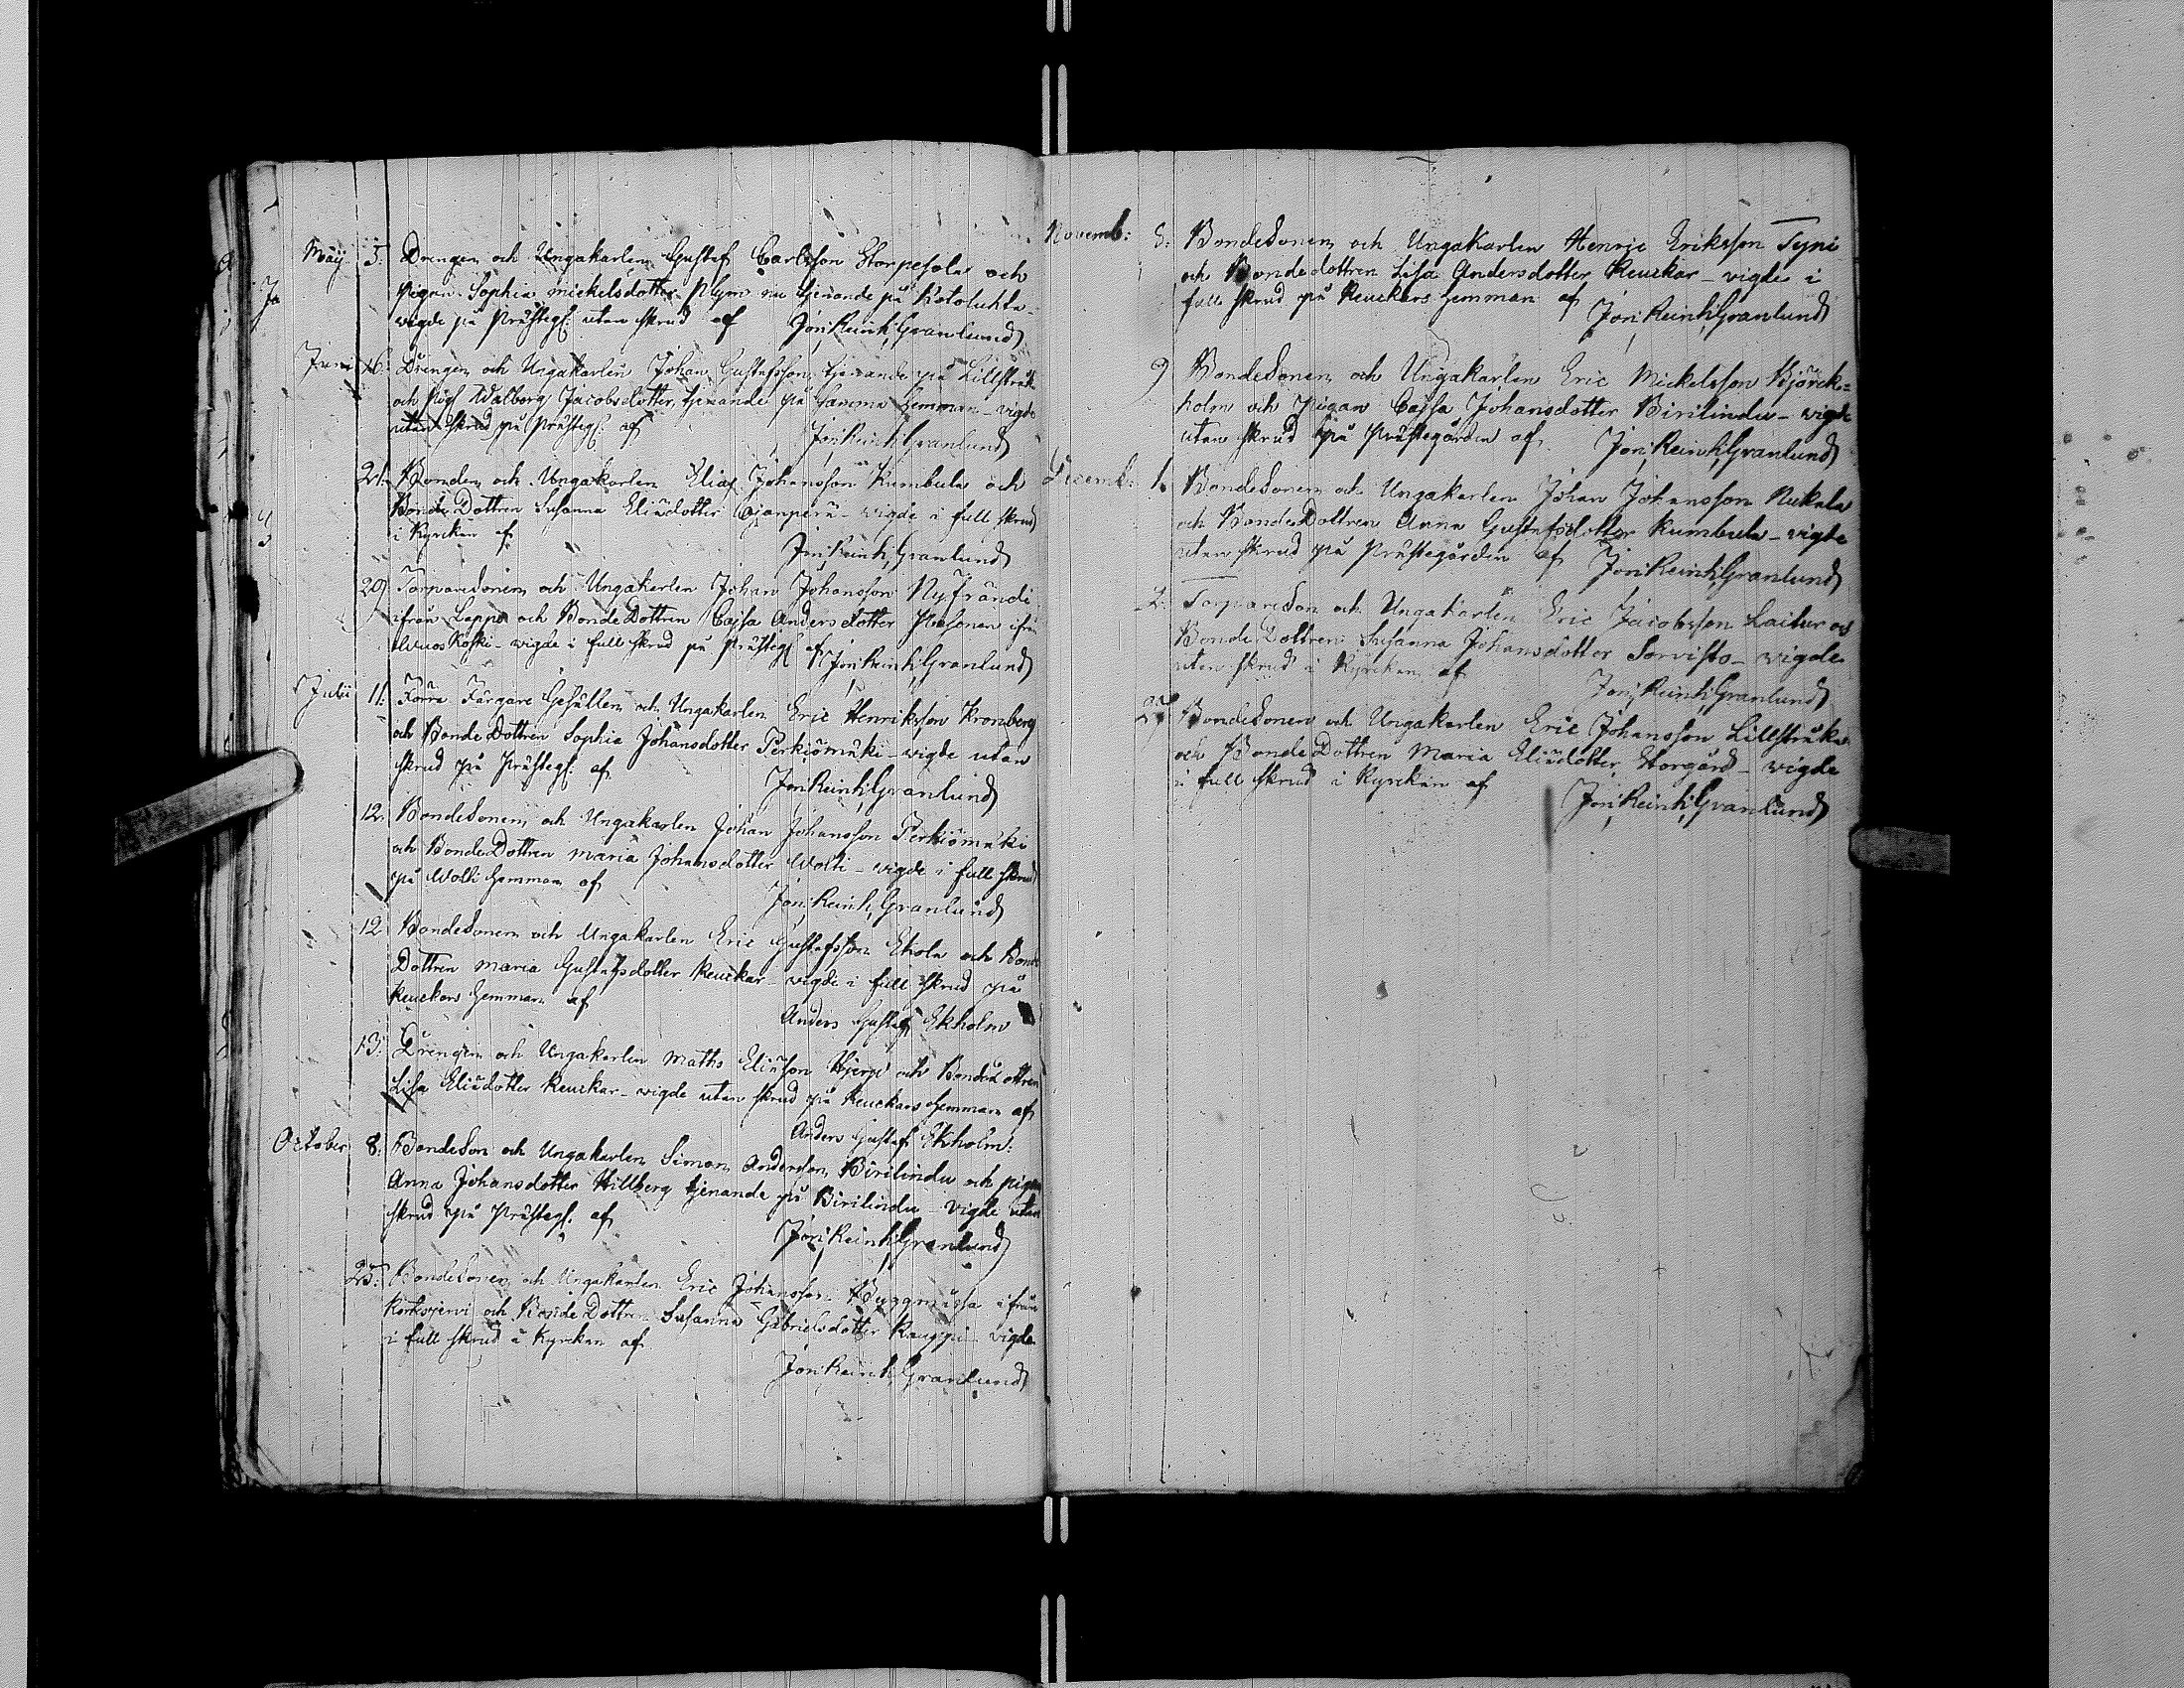 Maij 5. Drengen och Ungakarlen Gustaf Carlsson Storpesola och
Pigan Sophia Mickelsdotter Plym nu tjenande på Kotoluhta
vigde på Prästeg: utan skrud af Jon: Reinh: Granlund
Juni 16. Drengen och Ungakarlen Johan Gustafsson tjenande på Lillstråk
och Pig Walborg Jacobsdotter, tjenande på samma Hemman - vigde
utan skrud på Prästeg: af
Jon: Reinh: Granlund
21. Bonden och Ungakarlen Elias Johansson Kumbula och
Bonde Dottren Susanna Eliædotter Ojanperä - vigde i full skrud
i Kyrckan af
Jon: Reinh: Granlund
29 Torparesonen och Ungakarlen Johan Johansson Nyfrändi
ifrån Lappo och Bonde Dottren Cajsa Andersdotter Hesonen ifrån
Wuoskoski - vigde i full skrud på Prästeg: af
Jon: Reinh: Granlund
Julii 11. Förra Färgare Gesällen och Ungakarlen Eric Henriksson Kronberg
och Bonde Dottren Sophia Johansdotter Perkiömäki - vigde utan
skrud på Prästeg: af
Jon: Reinh: Granlund
12. Bondesonen och Ungakarlen Johan Johansson Perkiömäki
och Bonde Dottren Maria Johansdotter Wolti - vigde i full skrud
på Wolti Hemman af
Jon: Reinh: Granlund
12 Bondesonen och Ungakarlen Eric Gustafsson Ekola och Bonde
Dottren Maria Gustafsdotter Keuckar - vigde i full skrud på
Keuckars Hemman af
Anders Gustaf Ekholm
13. Drengen och Ungakarlen Maths Eliæson och BondeDottren
Lisa Eliædotter Keuckar - vigde utan skrud på Keuckars Hemman af
Anders Gustaf Ekholm:
October 8. Bondeson och Ungakarlen Simon Andersson Birilindu och pigan
Anna Johansdotter Hillberg tjenande på Birilindu - vigde utan
skrud på Prästeg: af
Jon: Reinh: Granlund
25. Bondesonen och Ungakarlen Eric Johansson Byggmäsa ifrån
Kortesjervi och Bonde Dottren Susanna Gabrielsdotter Kauppi - vigde
i full skrud i Kyrckan af
Jon: Reinh: Granlund
Novemb: 8. Bondesonen och Ungakarlen Henric Eriksson Typi
och Bondedottren Lisa Andersdotter Keuckar - vigde i
full skrud på Keuckars Hemman af Jon: Reinh: Granlund
9 Bondesonen och Ungakarlen Eric Mickelsson Björck=
holm och Pigan Cajsa Johansdotter Birilindu - vigde
utan skrud på Prästegården af Jon: Reinh: Granlund
Decemb: 1. Bondesonen och Ungakarlen Johan Johansson Nukala
och BondeDottren Anna Gustafsdotter Kumbula - vigde
utan skrud på Prästegården af Jon: Reinh: Granlund
2. Torpareson och Ungakarlen Eric Jacobsson Laitur och
Bonde Dottren Susanna Johansdotter Sorvisto - vigde
utan skrud i Kyrckan af
Jon: Reinh: Granlund
27 Bondesonen och Ungakarlen Eric Johansson Lillstråka
och BondeDottren Maria Eliædotter Storgård - vigde
i full skrud i Kyrckan af
Jon: Reinh: Granlund